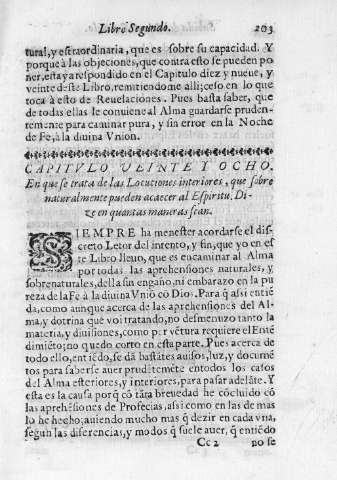 Libro Segundo. 203
tural, y estraordinaria, que es sobre su capacidad. Y
porque à las objeciones, que contra esto se pueden po
ner, esta ya respondido en el Capitulo diez y nueue, y
veinte deste Libro, remitiendome alli; ceso en lo que
toca à esto de Reuelaciones. Pues basta saber, que
de todas ellas le conuiene al Alma guardarse pruden-
temente para caminar pura, y sin error en la Noche
de Fe, à la diuina Vnion.
CAPITVLO VEINTE Y OCHO.
En que se trata de las Locuciones interiores, que sobre
naturalmente pueden acaecer al Espiritu. Di-
ze en quantas maneras sean.
SIEMPRE ha menester acordarse el dis-
creto Letor del intento, y fin, que yo en es
te Libro lleuo, que es encaminar al Alma
por todas las aprehensiones naturales, y
sobrenaturales, della sin engaño, ni embarazo en la pu
reza de la Fe à la diuina Vniõ cõ Dios. Para q̃ assi entiẽ
da, como aunque acerca de las aprehensiones del Al-
ma, y dotrina què voi tratando, no desmenuzo tanto la
materia, y diuisiones, como por vẽtura requiere el Entẽ
dimiẽto; no quedo corto en esta parte. Pues acerca de
todo ello, entiẽdo, se dà bastãtes auisos, luz, y documẽ
tos para saberse auer prudẽtemẽte entodos los casos
del Alma esteriores, y interiores, para pasar adelãte. Y
esta es la causa porq̃ cõ tãta breuedad he cõcluido cõ
las aprehẽsiones de Profecias, assi como en las de mas
lo he hecho; auiendo mucho mas q̃ dezir en cada vna,
segun las diferencias, y modos q̃ suele auer, q̃ entiẽdo
Cc 2 no se